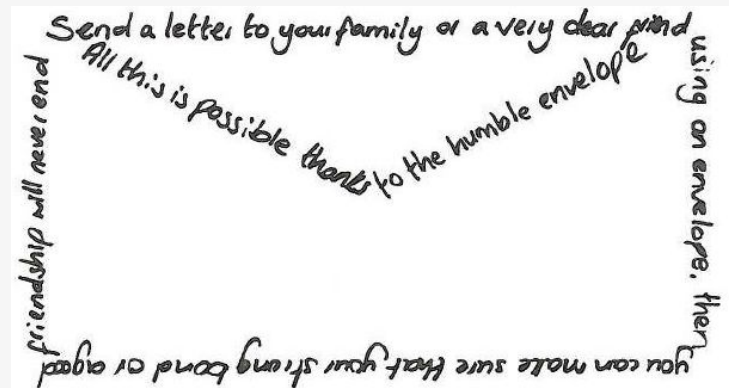 Send a letter to your family or a very dear friend
using an envelope, then
you can make sure that your strong bond or a good
friendship will never end
All this is possible thanks to the humble envelope